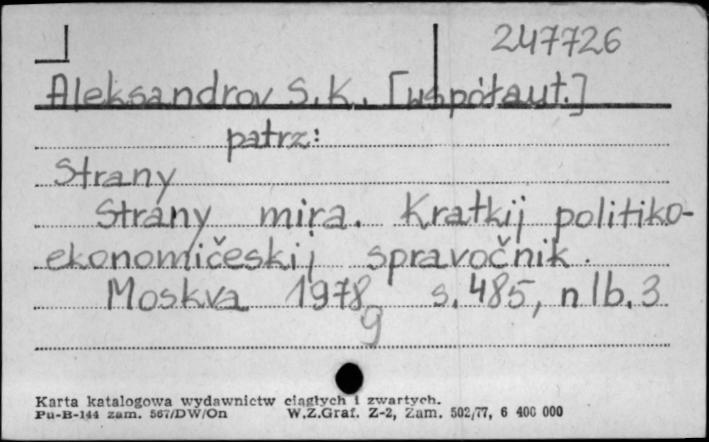 247726
Aleksandrov S.K. [współaut.]
patrz:
Strany
Strany mira. Kratkij politiko-
ekonomičeskij spravočnik.
Moskva 1978 s. 485, nlb. 3
9
Karta katalogowa wydawnictw ciągłych i zwartych.
Pu-B-144 zam. 567/DW/On W.Z.Graf. Z-2, Zam. 502/77, 6 400 000